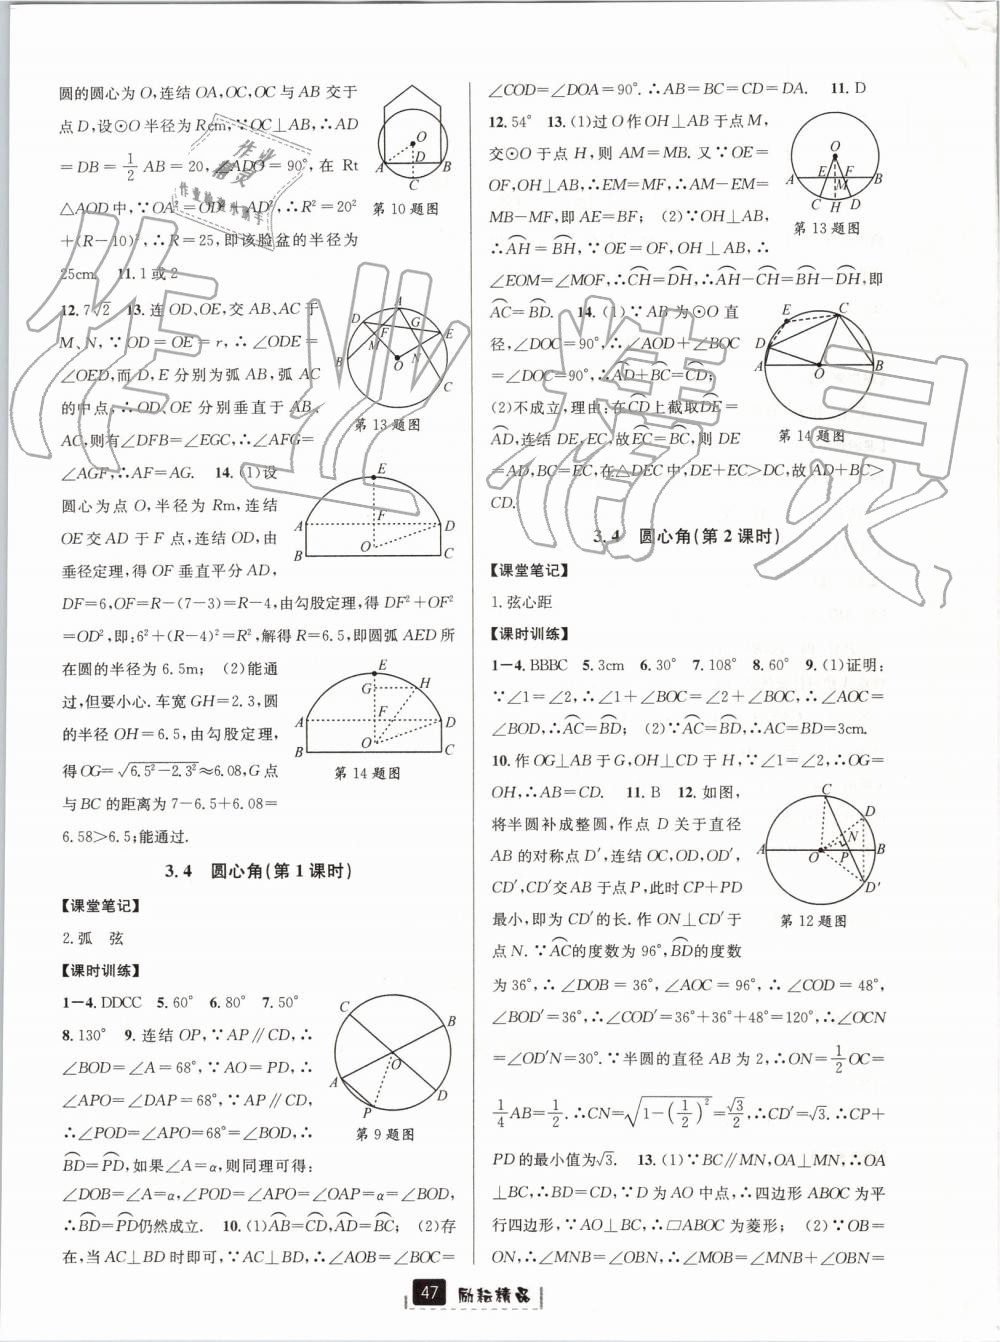 圆的圆心为 O,连结 OA,OC,OC 与 AB 交于
点 D,设⊙O 半径为 Rcm,∵OC⊥AB,∴AD
=DB=1/2 AB=20,∠ADO=90°,在 Rt
△AOD 中,∵OA²=OD²+AD²,∴R²=20²
+(R-10)²,∴R=25,即该脸盆的半径为
25cm. 11.1 或 2
第 10 题图
12.7√2 13.连 OD、OE,交 AB、AC 于
M、N,∵OD=OE=r,∴∠ODE=
∠OED,而 D,E 分别为弧 AB,弧 AC
的中点,∴OD、OE 分别垂直于 AB、
AC,则有∠DFB=∠EGC,∴∠AFG=
∠AGF,∴AF=AG. 14.(1)设
第 13 题图
圆心为点 O,半径为 Rm,连结
OE 交 AD 于 F 点,连结 OD,由
垂径定理,得 OF 垂直平分 AD,
DF=6,OF=R-(7-3)=R-4,由勾股定理,得 DF²+OF²
=OD²,即:6²+(R-4)²=R²,解得 R=6.5,即圆弧 AED 所
在圆的半径为 6.5m; (2)能通
过,但要小心.车宽 GH=2.3,圆
的半径 OH=6.5,由勾股定理,
得 OG=√6.5²-2.3²≈6.08,G 点
与 BC 的距离为 7-6.5+6.08=
6.58>6.5;能通过.
第 14 题图
3.4 圆心角(第 1 课时)
【课堂笔记】
2.弧 弦
【课时训练】
1-4.DDCC 5.60° 6.80° 7.50°
8.130° 9.连结 OP,∵AP∥CD,∴
∠BOD=∠A=68°,∵AO=PD,∴
∠APO=∠DAP=68°,∵AP∥CD,
∴∠POD=∠APO=68°=∠BOD,∴
B͡D=P͡D,如果∠A=α,则同理可得:
第 9 题图
∠DOB=∠A=α,∠POD=∠APO=∠OAP=α=∠BOD,
∴B͡D=P͡D仍然成立. 10.(1)A͡B=C͡D,A͡D=B͡C; (2)存
在,当 AC⊥BD 时即可,∵AC⊥BD,∴∠AOB=∠BOC=
∠COD=∠DOA=90°.∴AB=BC=CD=DA. 11.D
12.54° 13.(1)过 O 作 OH⊥AB 于点 M,
交⊙O 于点 H,则 AM=MB.又∵OE=
OF,OH⊥AB,∴EM=MF,∴AM-EM=
MB-MF,即 AE=BF; (2)∵OH⊥AB,
∴A͡H=B͡H,∵OE=OF,OH⊥AB,∴
第 13 题图
∠EOM=∠MOF,∴C͡H=D͡H,∴A͡H-C͡H=B͡H-D͡H,即
A͡C=B͡D. 14.(1)∵AB 为⊙O 直
径,∠DOC=90°,∴∠AOD+∠BOC
=∠DOC=90°,∴A͡D+B͡C=C͡D;
(2)不成立,理由:在C͡D上截取D͡E=
A͡D,连结 DE,EC,故E͡C=B͡C,则 DE
第 14 题图
=AD,BC=EC,在△DEC 中,DE+EC>DC,故 AD+BC>
CD.
3.4 圆心角(第 2 课时)
【课堂笔记】
1.弦心距
【课时训练】
1-4.BBBC 5.3cm 6.30° 7.108° 8.60° 9.(1)证明:
∵∠1=∠2,∴∠1+∠BOC=∠2+∠BOC,∴∠AOC=
∠BOD,∴A͡C=B͡D; (2)∵A͡C=B͡D,∴AC=BD=3cm.
10.作 OG⊥AB 于 G,OH⊥CD 于 H,∵∠1=∠2,∴OG=
OH,∴AB=CD. 11.B 12.如图,
将半圆补成整圆,作点 D 关于直径
AB 的对称点 D′,连结 OC,OD,OD′,
CD′,CD′交 AB 于点 P,此时 CP+PD
最小,即为 CD′的长.作 ON⊥CD′于
点 N.∵A͡C的度数为 96°,B͡D的度数
第 12 题图
为 36°,∴∠DOB=36°,∠AOC=96°,∴∠COD=48°,
∠BOD′=36°,∴∠COD′=36°+36°+48°=120°,∴∠OCN
=∠OD′N=30°.∵半圆的直径 AB 为 2,∴ON=1/2 OC=
1/4 AB=1/2.∴CN=√1-(1/2)²=√3/2,∴CD′=√3.∴CP+
PD 的最小值为√3. 13.(1)∵BC∥MN,OA⊥MN,∴OA
⊥BC,∴BD=CD,∵D 为 AO 中点,∴四边形 ABOC 为平
行四边形,∵AO⊥BC,∴▱ABOC 为菱形; (2)∵OB=
ON,∴∠MNB=∠OBN,∴∠MOB=∠MNB+∠OBN=
47 励耘精品